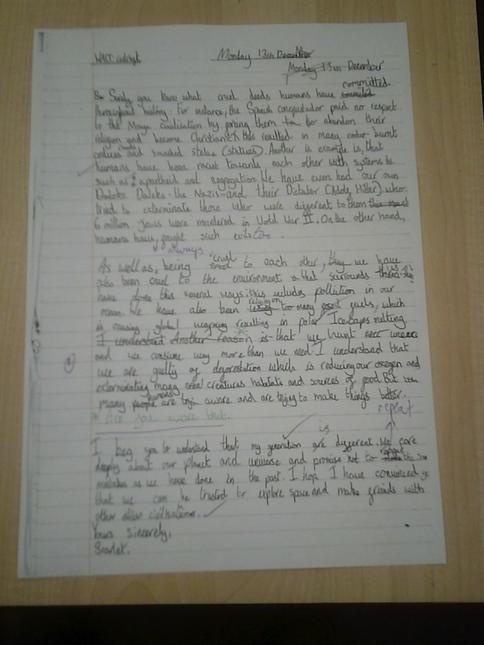 Monday 13th December
Monday 13th December
committed
Surely you know what cruel deeds humans have
throughout history. For instance, the Spanish conquistador paid no respect
to the Maya civilisation by forcing them to abandon their
religion and become Christians this resulted in many burnt
and smashed statue (statues). Another example is, that
humans have been racist towards each other with systems
such as apartheid and segregation. We have even had our own
Daleks - the Nazis and their Dictator (Adolf Hitler), who
tried to exterminate those who were different to them
6 million Jews were murdered in World War II. On the other hand,
humans have fought such evils
always
As well as, being cruel to each other, we have
also been cruel to the environment that surrounds us
have done this several ways: this includes pollution in our
We have also been too many fuels, which
is causing global warming resulting in polar Icecaps melting.
I understand Another reason is that we hunt
and we consume way more than we need. I understand that
we are guilty of deforestation which is reducing our oxegen and
exterminating many creatures habitats and sources of food. But
many humans are aware and are trying to make things better.
repeat
I beg you to understand that my generation are different. We care
deeply about our planet and universe and promise not to repeat the same
mistakes as we have done in the past. I hope I have convinced
that we can be trusted to explore space and make friends with
other civilisations.
Yours sincerely,
Scarlet.